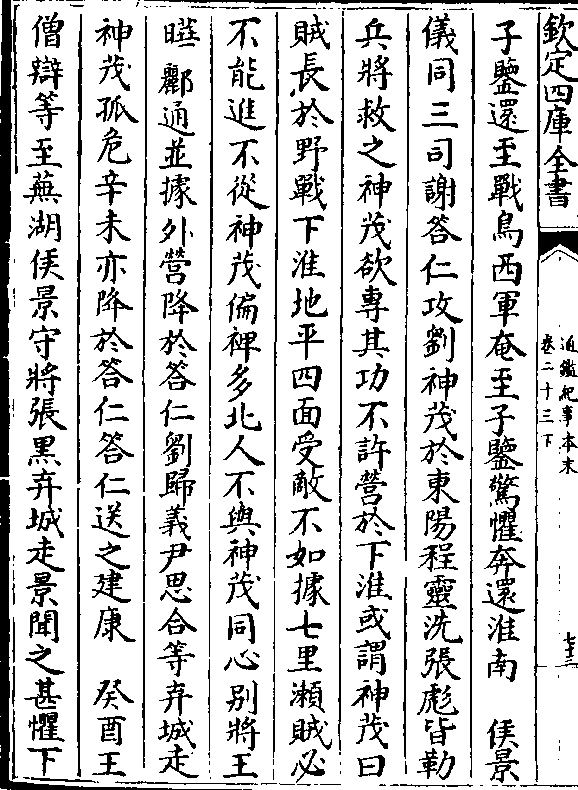 欽定四庫全書
通鑑紀事本末
卷二十三下
七十三
子鑒還至戰鳥西軍奄至子鑒驚懼奔還淮南　侯景
儀同三司謝答仁攻劉神茂於東陽程靈洗張彪皆勒
兵將救之神茂欲專其功不許營於下淮或謂神茂曰
賊長於野戰下淮地平四面受敵不如據七里瀨賊必
不能進不從神茂偏裨多北人不與神茂同心别將王
曄酈通並據外營降於答仁劉歸義尹思合等弃城走
神茂孤危辛未亦降於答仁答仁送之建康　癸酉王
僧辯等至蕪湖侯景守將張黑弃城走景聞之甚懼下